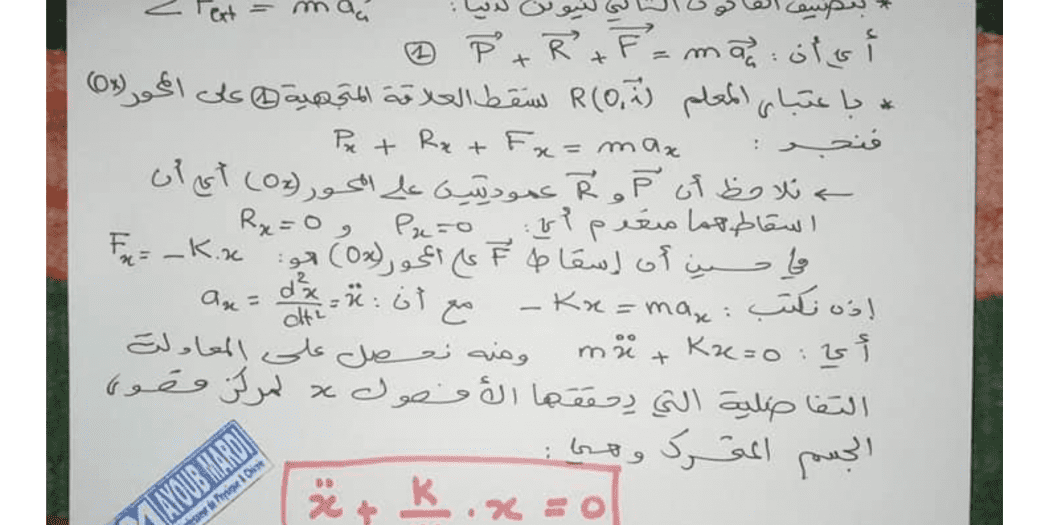 * بتطبيق القانون الثاني لنيوتن لدينا: Σ F⃗ext = m a⃗G
أي أن: P⃗ + R⃗ + F⃗ = m a⃗G ①
* باعتبار المعلم R(O,i⃗) نسقط العلاقة المتجهية ① على المحور (Ox)
فنجد: Px + Rx + Fx = m ax
← نلاحظ أن P⃗ و R⃗ عموديتين على المحور (Ox) أي أن
اسقاطهما منعدم أي: Px = 0 و Rx = 0
في حين أن إسقاط F⃗ على المحور (Ox) هو: Fx = -K.x
إذن نكتب: -Kx = max مع أن: ax = d²x/dt² = ẍ
أي: mẍ + Kx = 0 ومنه نحصل على المعادلة
التفاضلية التي يحققها الأفصول x لمركز قصور
الجسم المتحرك وهي:
ẍ + K/ . x = 0
AYOUB MARDI
de Physique & Chimie